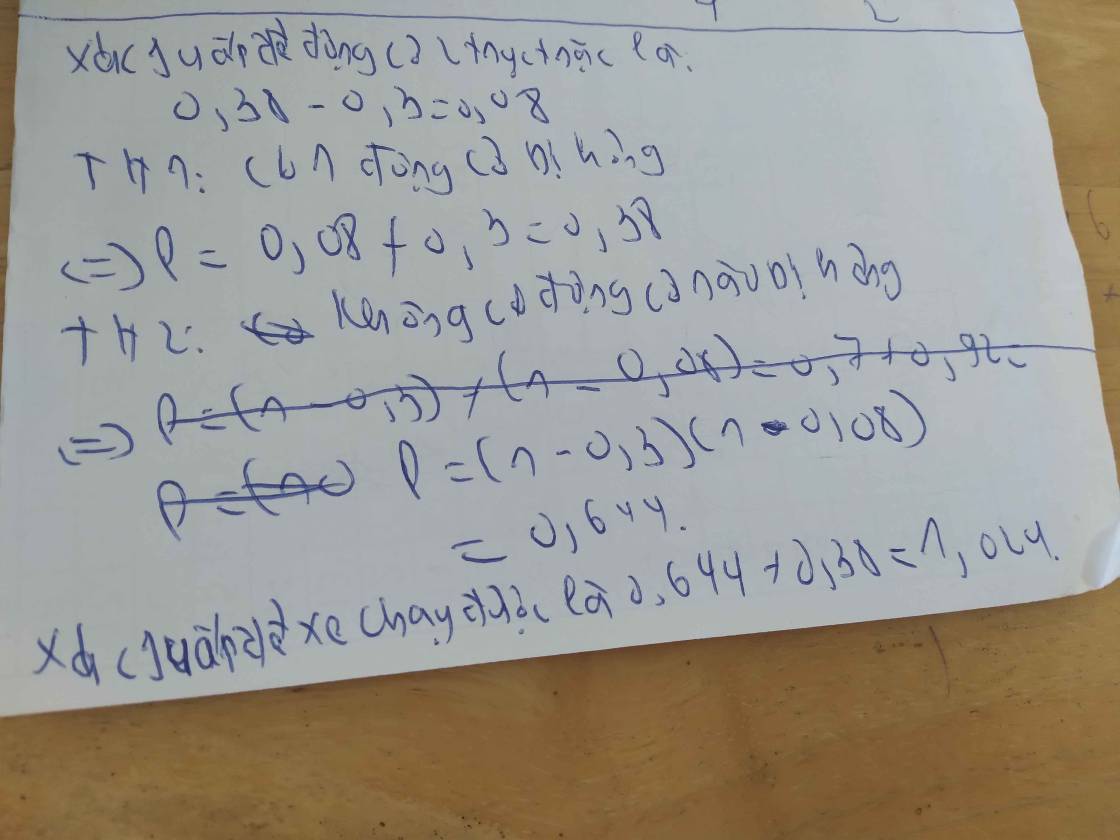 xác suất để động cơ 2 trục trặc là:
0,38 - 0,3 = 0,08
TH1: Có 1 động cơ bị hỏng
(=) P = 0,08 + 0,3 = 0,38
TH2: Không có động cơ nào bị hỏng
(=) P = (1 - 0,3) + (1 - 0,08) = 0,7 + 0,92 =
P = (1 P = (1 - 0,3)(1 - 0,08)
= 0,644.
xác suất để xe chạy được là 0,644 + 0,38 = 1,024.